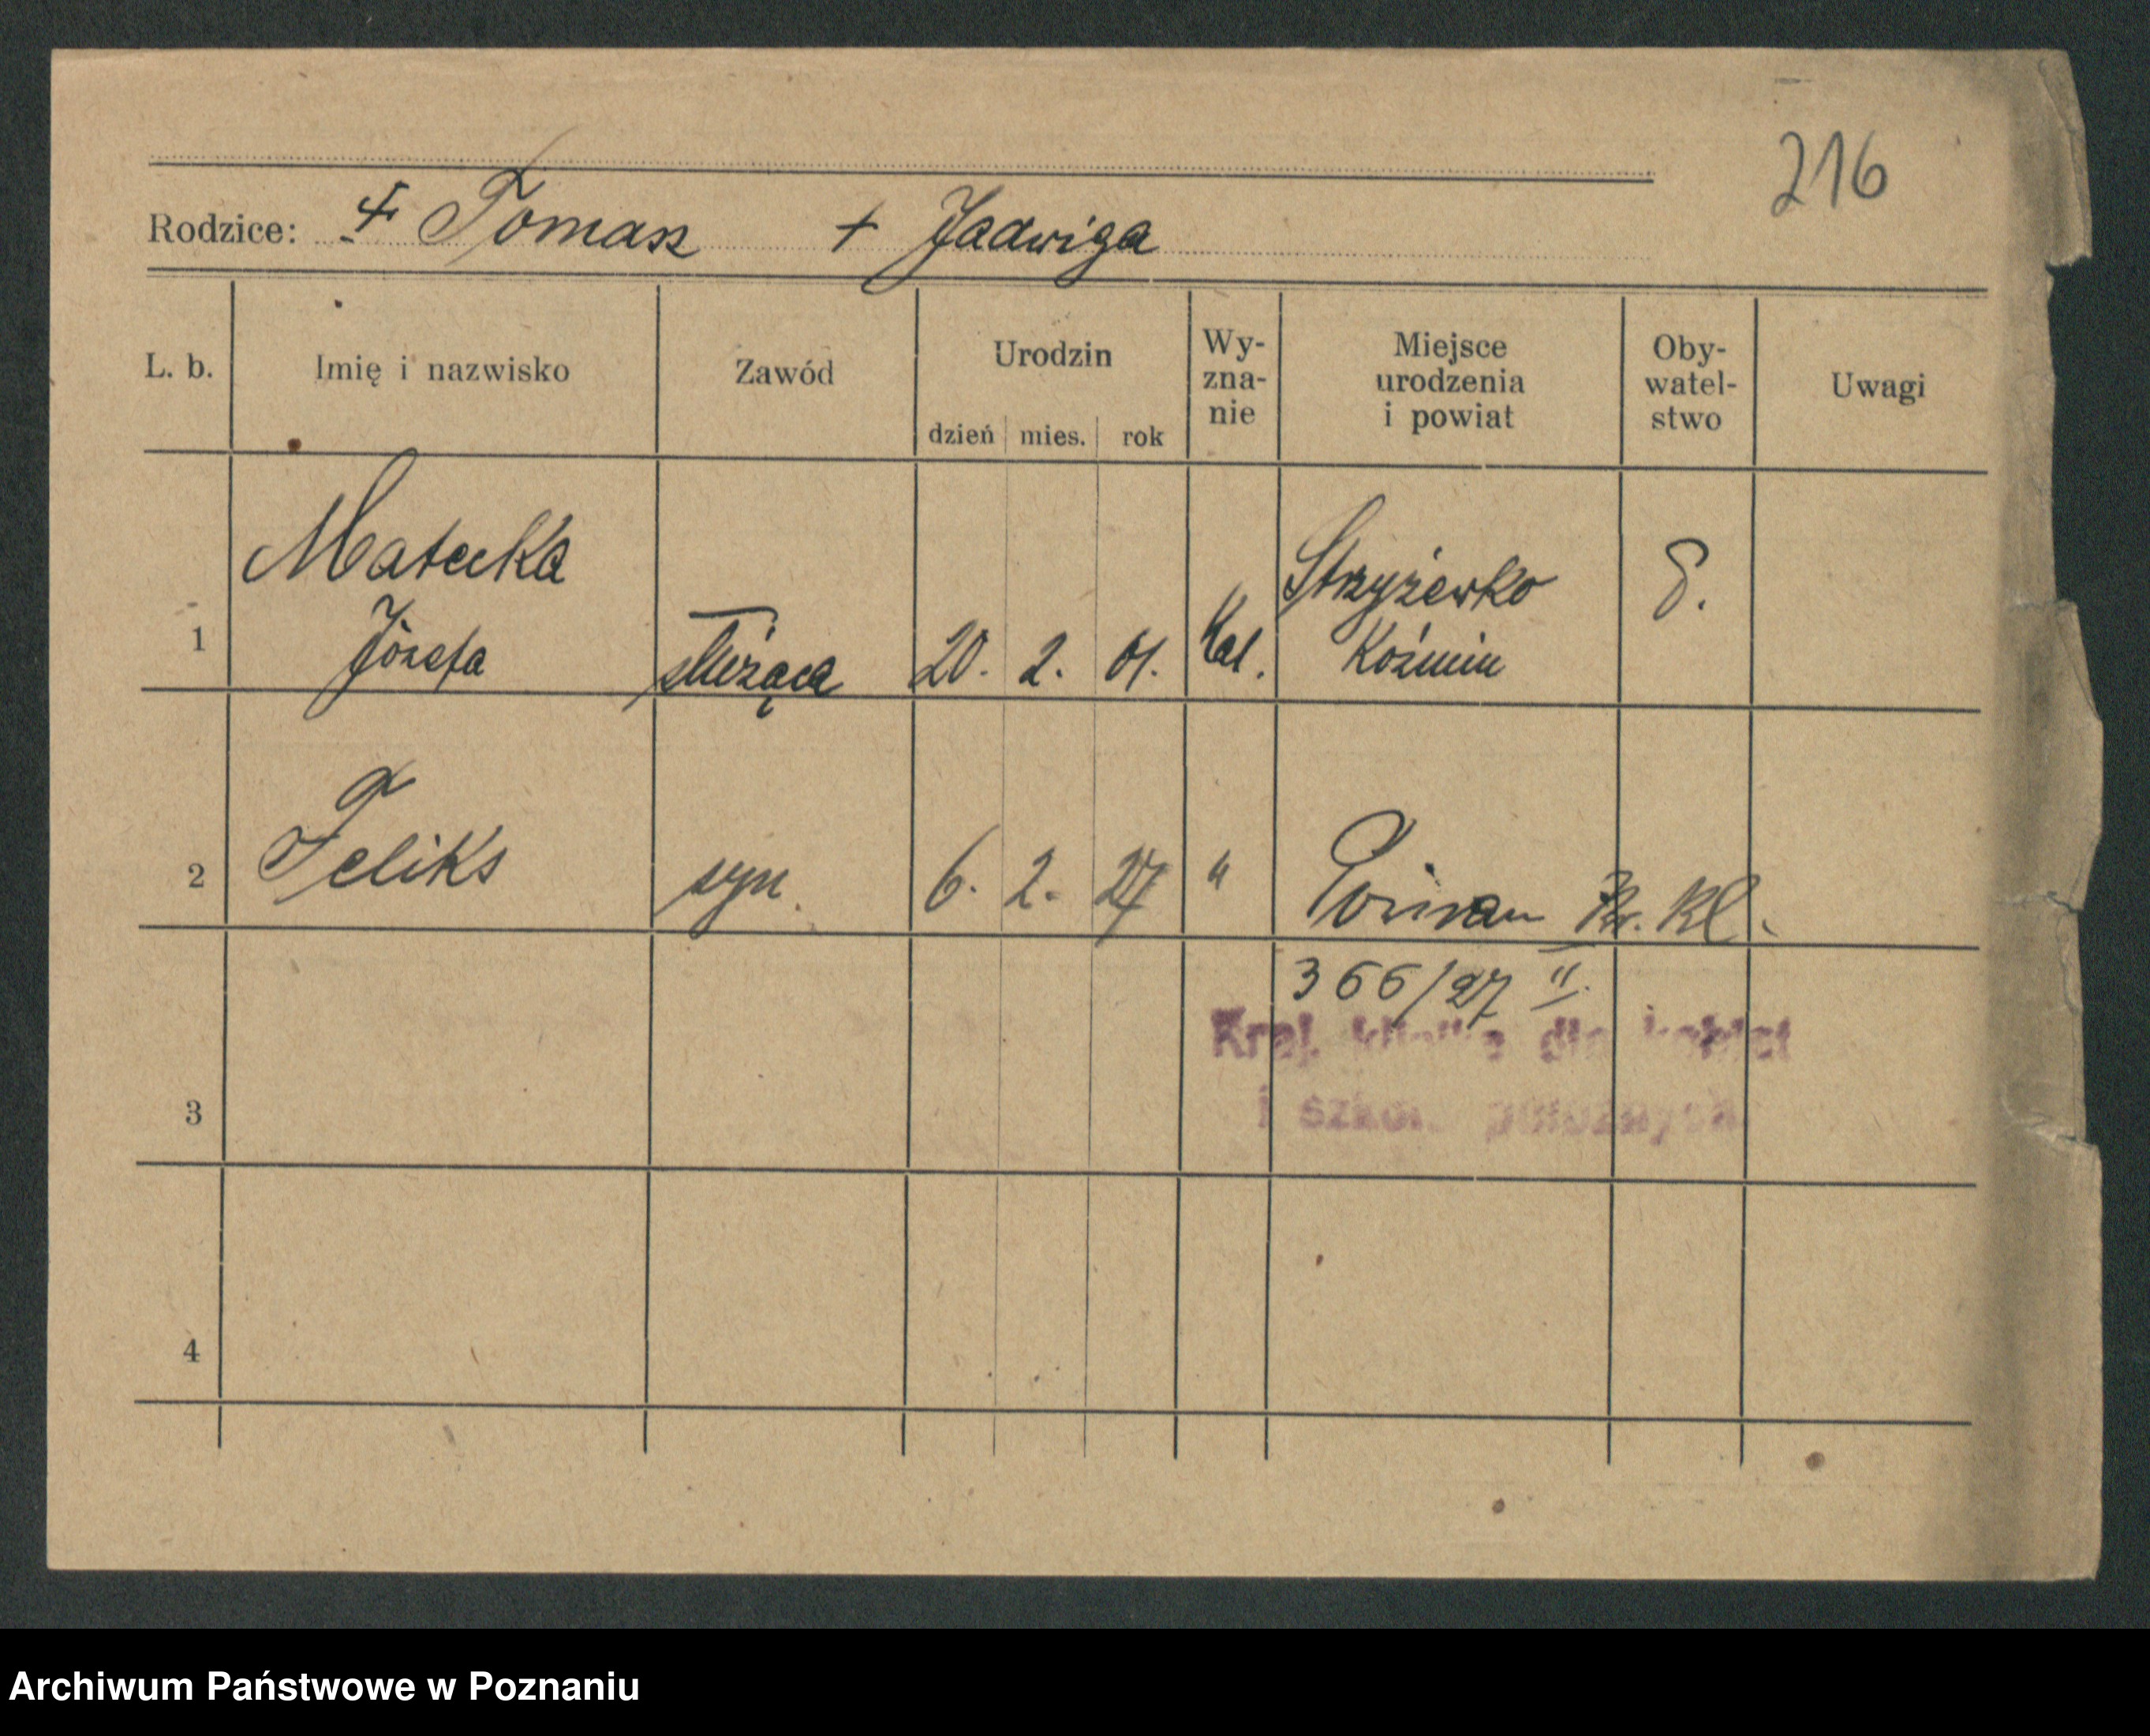 216
Rodzice: + Tomasz + Jadwiga
L. b. Imię i nazwisko Zawód Urodzin dzień mies. rok Wy- zna- nie Miejsce urodzenia i powiat Oby- watel- stwo Uwagi
Matecka Strzyżewko
1 Józefa służąca 20. 2. 01. Kat. Koźmin
2 Feliks syn. 6. 2. 27 " Poznan Kr. Kl.
366/27 II.
Kraj. klinika dla kobiet
i szkoła położnych
3
4
Archiwum Państwowe w Poznaniu